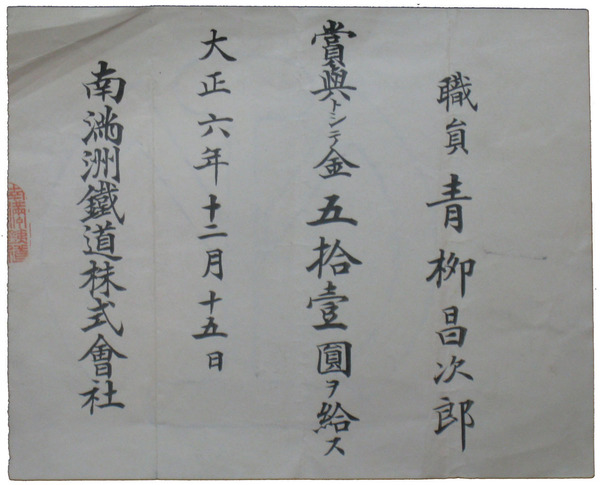 職員 青柳昌次郎
賞與トシテ金五拾壹圓ヲ給ス
大正六年十二月十五日
南滿洲鐵道株式會社